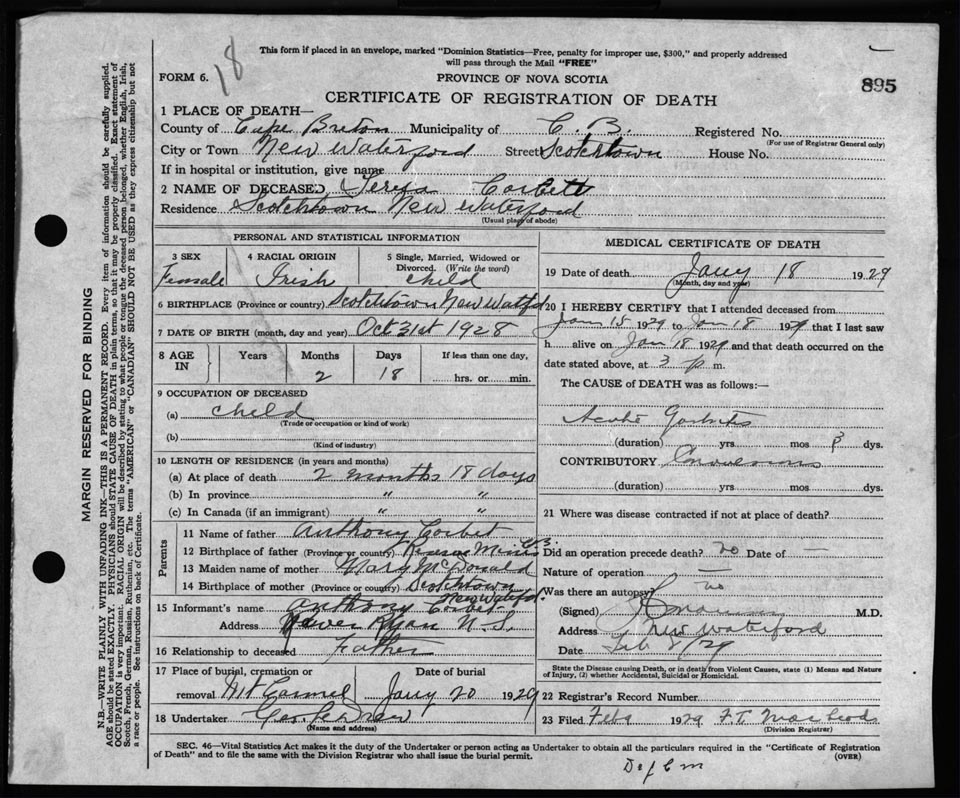 This form if placed in an envelope, marked "Dominion Statistics—Free, penalty for improper use, $300," and properly addressed
will pass through the Mail "FREE"
18
FORM 6.
PROVINCE OF NOVA SCOTIA
895
CERTIFICATE OF REGISTRATION OF DEATH
1 PLACE OF DEATH—
County of Cape Breton Municipality of C. B. Registered No.
(For use of Registrar General only)
City or Town New Waterford Street Scotchtown House No.
If in hospital or institution, give name
2 NAME OF DECEASED Teresa Corbett
Residence Scotchtown New Waterford
(Usual place of abode)
PERSONAL AND STATISTICAL INFORMATION
3 SEX
Female
4 RACIAL ORIGIN
Irish
5 Single, Married, Widowed or
Divorced. (Write the word)
child
6 BIRTHPLACE (Province or country) Scotchtown New Watfd
7 DATE OF BIRTH (month, day and year) Oct 31st 1928
8 AGE IN
Years Months Days If less than one day,
2 18 hrs. or min.
9 OCCUPATION OF DECEASED
(a) child
(Trade or occupation or kind of work)
(b)
(Kind of industry)
10 LENGTH OF RESIDENCE (in years and months)
(a) At place of death 2 months 18 days
(b) In province " "
(c) In Canada (if an immigrant) " "
Parents
11 Name of father Anthony Corbet
12 Birthplace of father (Province or country) Mines C.B.
13 Maiden name of mother Mary McDonald
14 Birthplace of mother (Province or country) Scotchtown
New Waterfd.
15 Informant's name Anthony Corbet
Address River Ryan N.S.
16 Relationship to deceased Father
17 Place of burial, cremation or
removal Mt Carmel
Date of burial
Jany 20 1929
18 Undertaker Geo.
(Name and address)
MEDICAL CERTIFICATE OF DEATH
19 Date of death Jany 18 1929
(Month, day and year)
20 I HEREBY CERTIFY that I attended deceased from
Jan 15 1929 to Jan 18 1929 that I last saw
h alive on Jan 18 1929 and that death occurred on the
date stated above, at 3 p m.
The CAUSE of DEATH was as follows:—
Acute Gastritis
(duration) yrs mos 3 dys.
CONTRIBUTORY Convulsions
(duration) yrs mos dys.
21 Where was disease contracted if not at place of death?
Did an operation precede death? no Date of —
Nature of operation —
Was there an autopsy? no
(Signed) M.D.
Address New Waterford
Date Feb 8/29
State the Disease causing Death, or in death from Violent Causes, state (1) Means and Nature
of Injury, (2) whether Accidental, Suicidal or Homicidal.
22 Registrar's Record Number
23 Filed Feb 9 1929 F.T. MacLeod
(Division Registrar)
SEC. 46—Vital Statistics Act makes it the duty of the Undertaker or person acting as Undertaker to obtain all the particulars required in the "Certificate of Registration
of Death" and to file the same with the Division Registrar who shall issue the burial permit.
(OVER)
MARGIN RESERVED FOR BINDING
N.B.—WRITE PLAINLY WITH UNFADING INK—THIS IS A PERMANENT RECORD. Every item of information should be carefully supplied.
AGE should be stated EXACTLY. PHYSICIANS should STATE CAUSE OF DEATH in plain terms, that it may be properly classified. Exact statement of
OCCUPATION is very important. RACIAL ORIGIN will be described by stating to what people or tongue the deceased person belonged, whether English, Irish,
Scotch, French, German, Russian, Ruthenian, etc. The terms "AMERICAN" or "CANADIAN" SHOULD NOT BE USED as they express citizenship but not
a race or people. See instructions on back of Certificate.